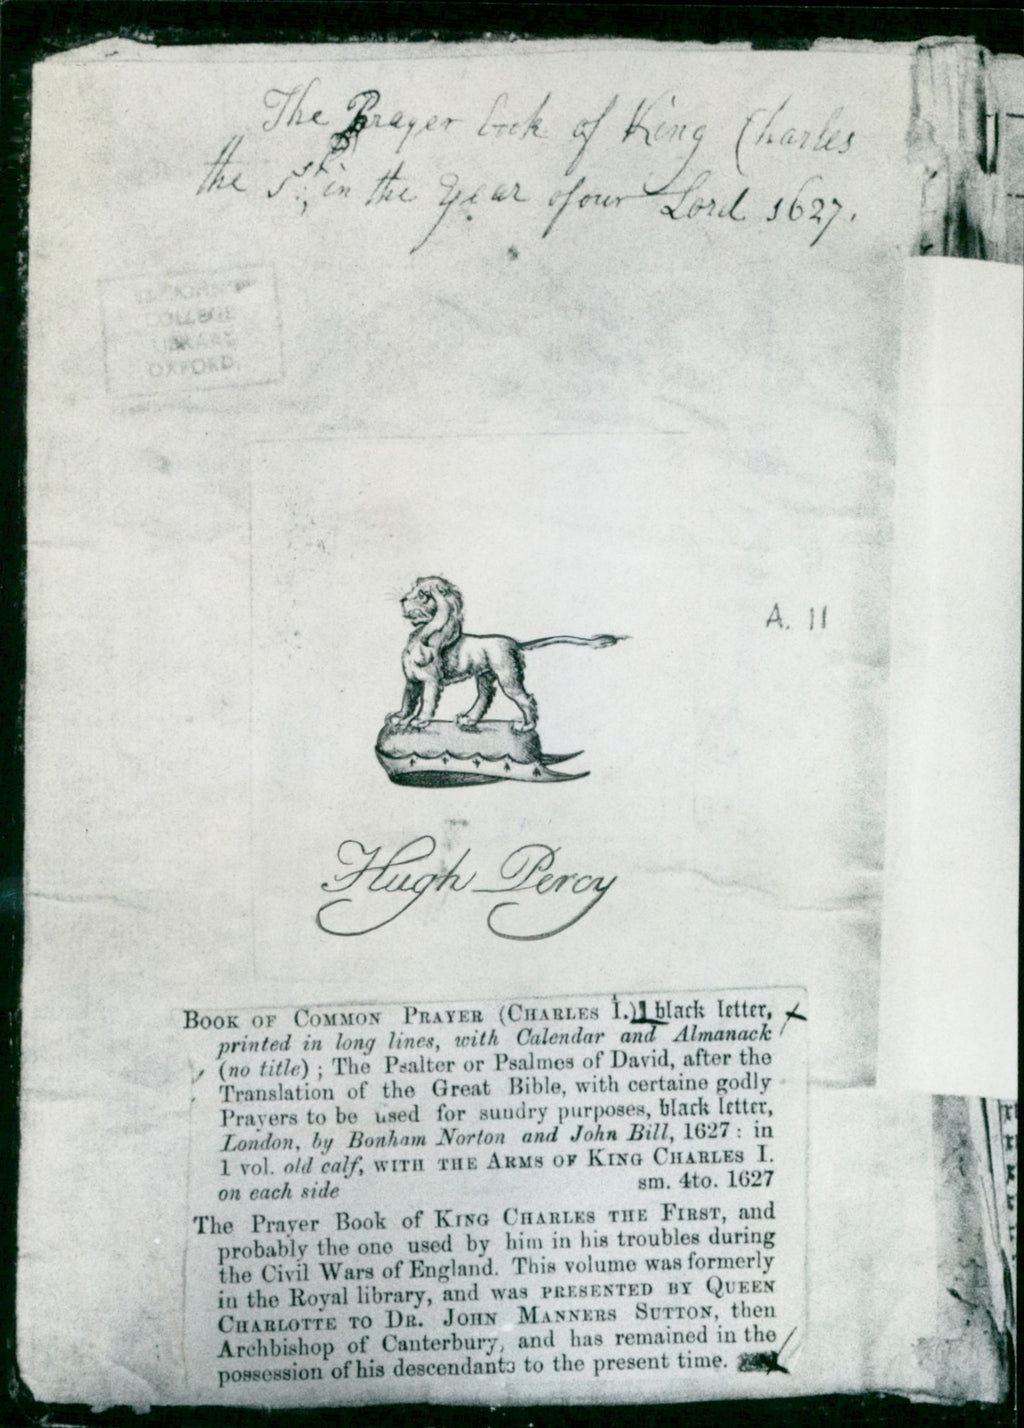 The Prayer book of King Charles
the 1st, in the Year of our Lord 1627.
COLLEGE
LIBRARY
OXFORD.
A. 11
Hugh Percy
BOOK OF COMMON PRAYER (CHARLES I.) black letter,
printed in long lines, with Calendar and Almanack
(no title); The Psalter or Psalmes of David, after the
Translation of the Great Bible, with certaine godly
Prayers to be used for sundry purposes, black letter,
London, by Bonham Norton and John Bill, 1627: in
1 vol. old calf, WITH THE ARMS OF KING CHARLES I.
on each side sm. 4to. 1627
The Prayer Book of KING CHARLES THE FIRST, and
probably the one used by him in his troubles during
the Civil Wars of England. This volume was formerly
in the Royal library, and was PRESENTED BY QUEEN
CHARLOTTE TO DR. JOHN MANNERS SUTTON, then
Archbishop of Canterbury, and has remained in the
possession of his descendants to the present time.